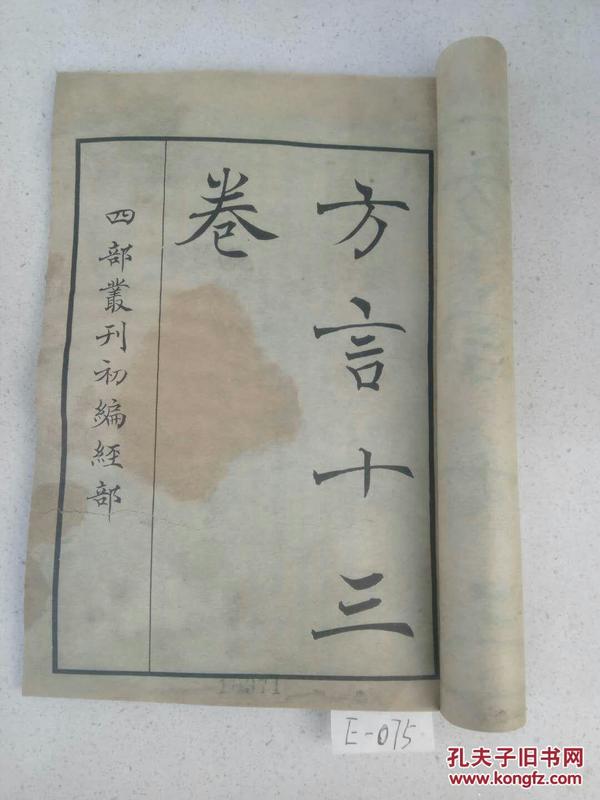 方言十三
卷
四部叢刊初編經部
E-075
孔夫子旧书网
www.kongfz.com